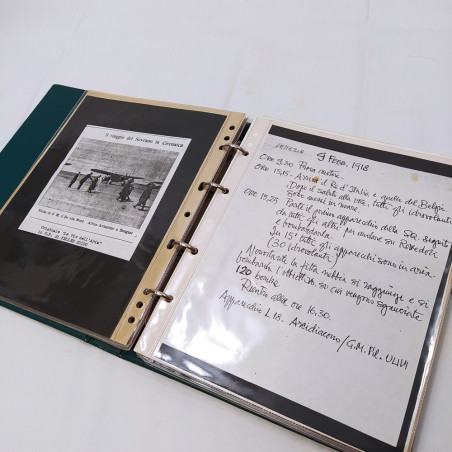 Il viaggio del Sovrano in Cirenaica
VENEZIA
9 FEBB. 1918
ORE 9.30 Prova motore.
ORE 15,15 - Arriva il Re d'Italia e quello del Belgio
Dopo il saluto alla voce, tutti gli idrovolanti
sono messi in moto.
ORE 15,25 Parte il primo apparecchio della Sq. seguito
da tutti gli altri per
a bombardarla.
In 15' tutti gli apparecchi sono in aria.
(30 idrovolanti)
Nonostante la fitta nebbia si raggiunge e si
bombarda l'obiettivo, su cui vengono sganciate
120 bombe.
Rientro alle ore 16.30.
Apparecchio L.18. Arcidiacono/G.M. Pil. ULIVI